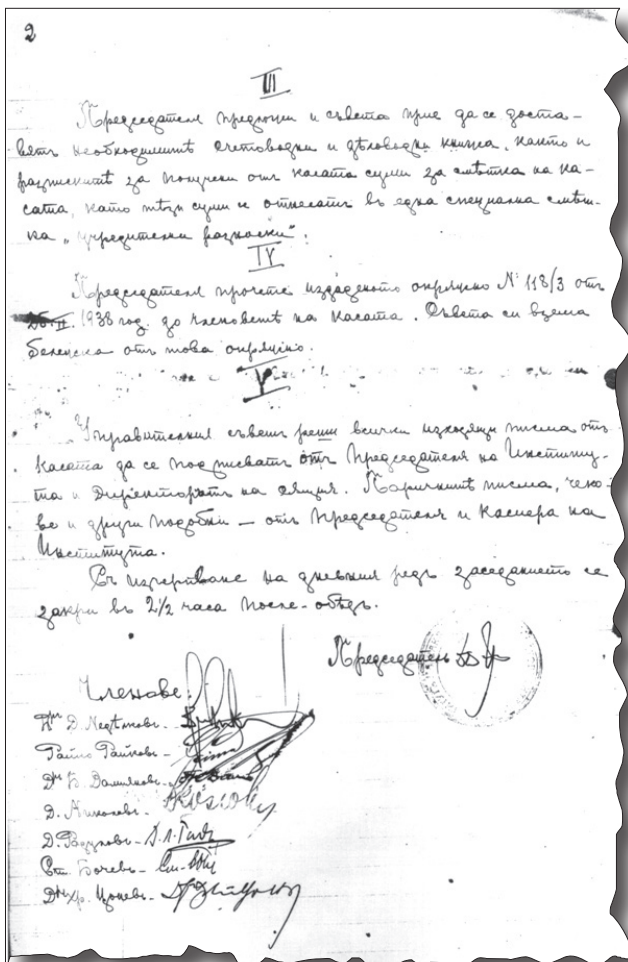 2
III
Председателя предложи и съвета прие да се доста-
вятъ необходимитѣ счетоводни и дѣловодни книжа, както и
разпискитѣ за получени отъ касата суми за смѣтка на ка-
сата, като тѣзи суми се отнесатъ въ една специална смѣт-
ка „учредителни разноски“.
IV
Председателя прочете издаденото окрѫжно № 118/3 отъ
1938 год. до членоветѣ на касата. Съвета си взема
бележка отъ това окрѫжно.
V
Управителния съветъ реши всички изходящи писма отъ
Касата да се подписватъ отъ Председателя на Институ-
та и Директорътъ на сѫщия. Паричнитѣ писма, чеко-
ве и други подобни — отъ Председателя и Касиера на
Института.
Съ изчерпване на дневния редъ заседанието се
закри въ 2½ часа после-обѣдъ.
Председатель
Членове:
Д-ръ Д.
Райко Райковъ -
Д-ръ Б. Дамяновъ -
Д. Николовъ -
Д.
Ст. Бочевъ -
Д-ръ Хр. Цоневъ -